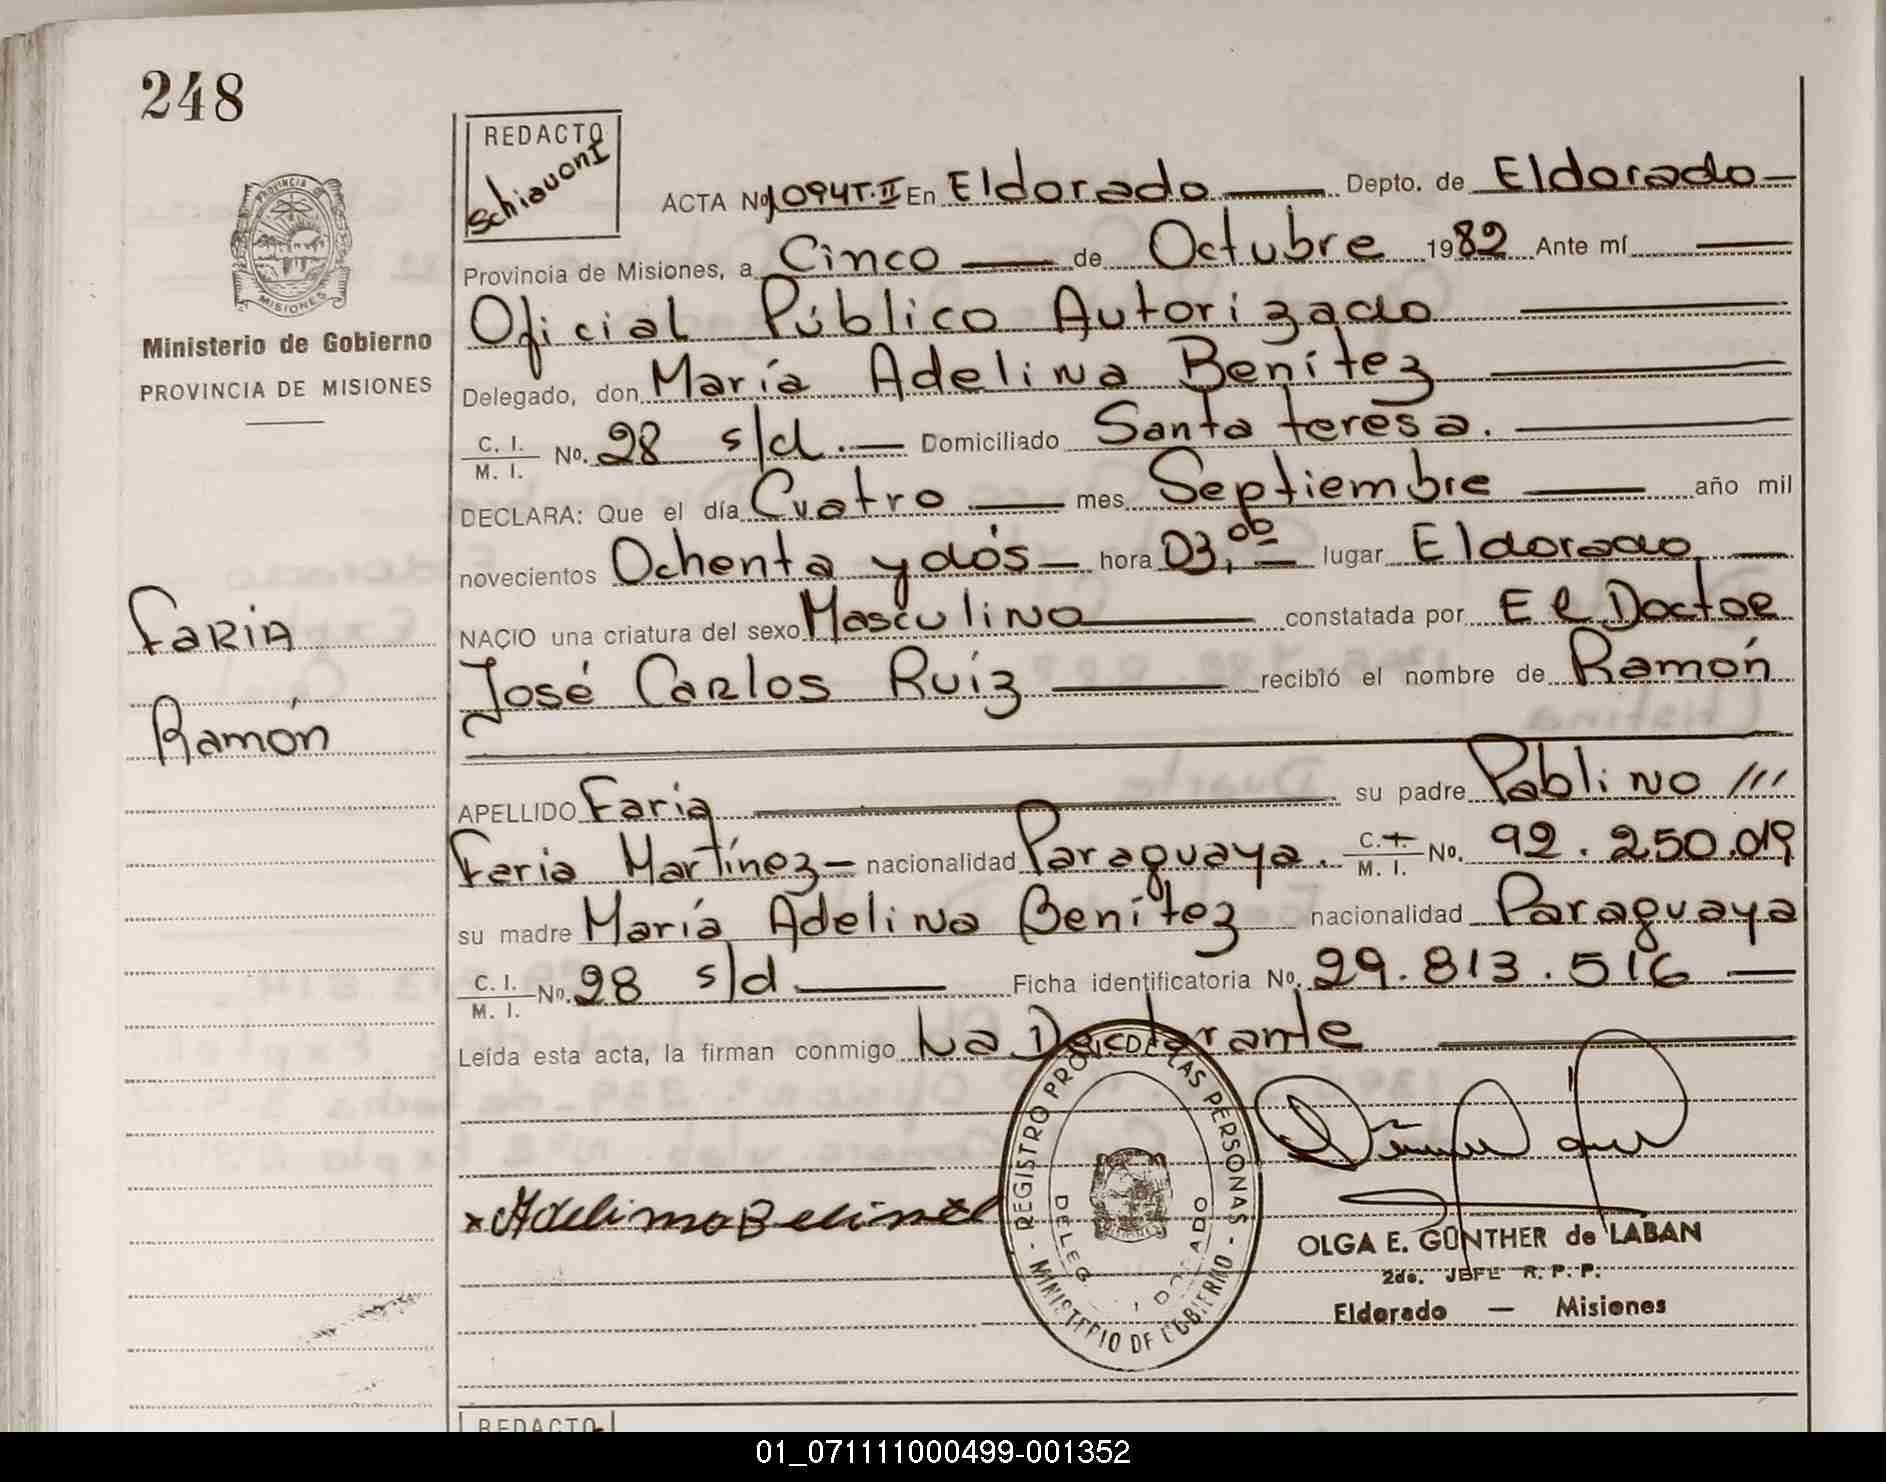 248
REDACTO
Schiavoni
PROVINCIA
MISIONES
Ministerio de Gobierno
PROVINCIA DE MISIONES
ACTA No 1094T.II En Eldorado Depto. de Eldorado
Provincia de Misiones, a Cinco de Octubre 1982 Ante mí
Oficial Público Autorizado
Delegado, don María Adelina Benítez
C. I. / M. I. No. 28 s/d. Domiciliado Santa teresa.
DECLARA: Que el día Cuatro mes Septiembre año mil
novecientos Ochenta y dós hora 03,00 lugar Eldorado
NACIO una criatura del sexo Masculino constatada por El Doctor
José Carlos Ruíz recibió el nombre de Ramón
Faria
Ramón
APELLIDO Faria su padre Pablino ///
Faria Martínez nacionalidad Paraguaya. C.I. / M. I. No. 92.250.019
su madre María Adelina Benítez nacionalidad Paraguaya
C. I. / M. I. No. 28 s/d Ficha identificatoria No. 29.813.516
Leída esta acta, la firman conmigo La Declarante
REGISTRO PROVINC DE LAS PERSONAS - MINISTERIO DE GOBIERNO -
x Adelina Benitez
OLGA E. GÜNTHER de LABAN
2do. JEFE R. P. P.
Eldorado — Misiones
REDACTO
01_071111000499-001352